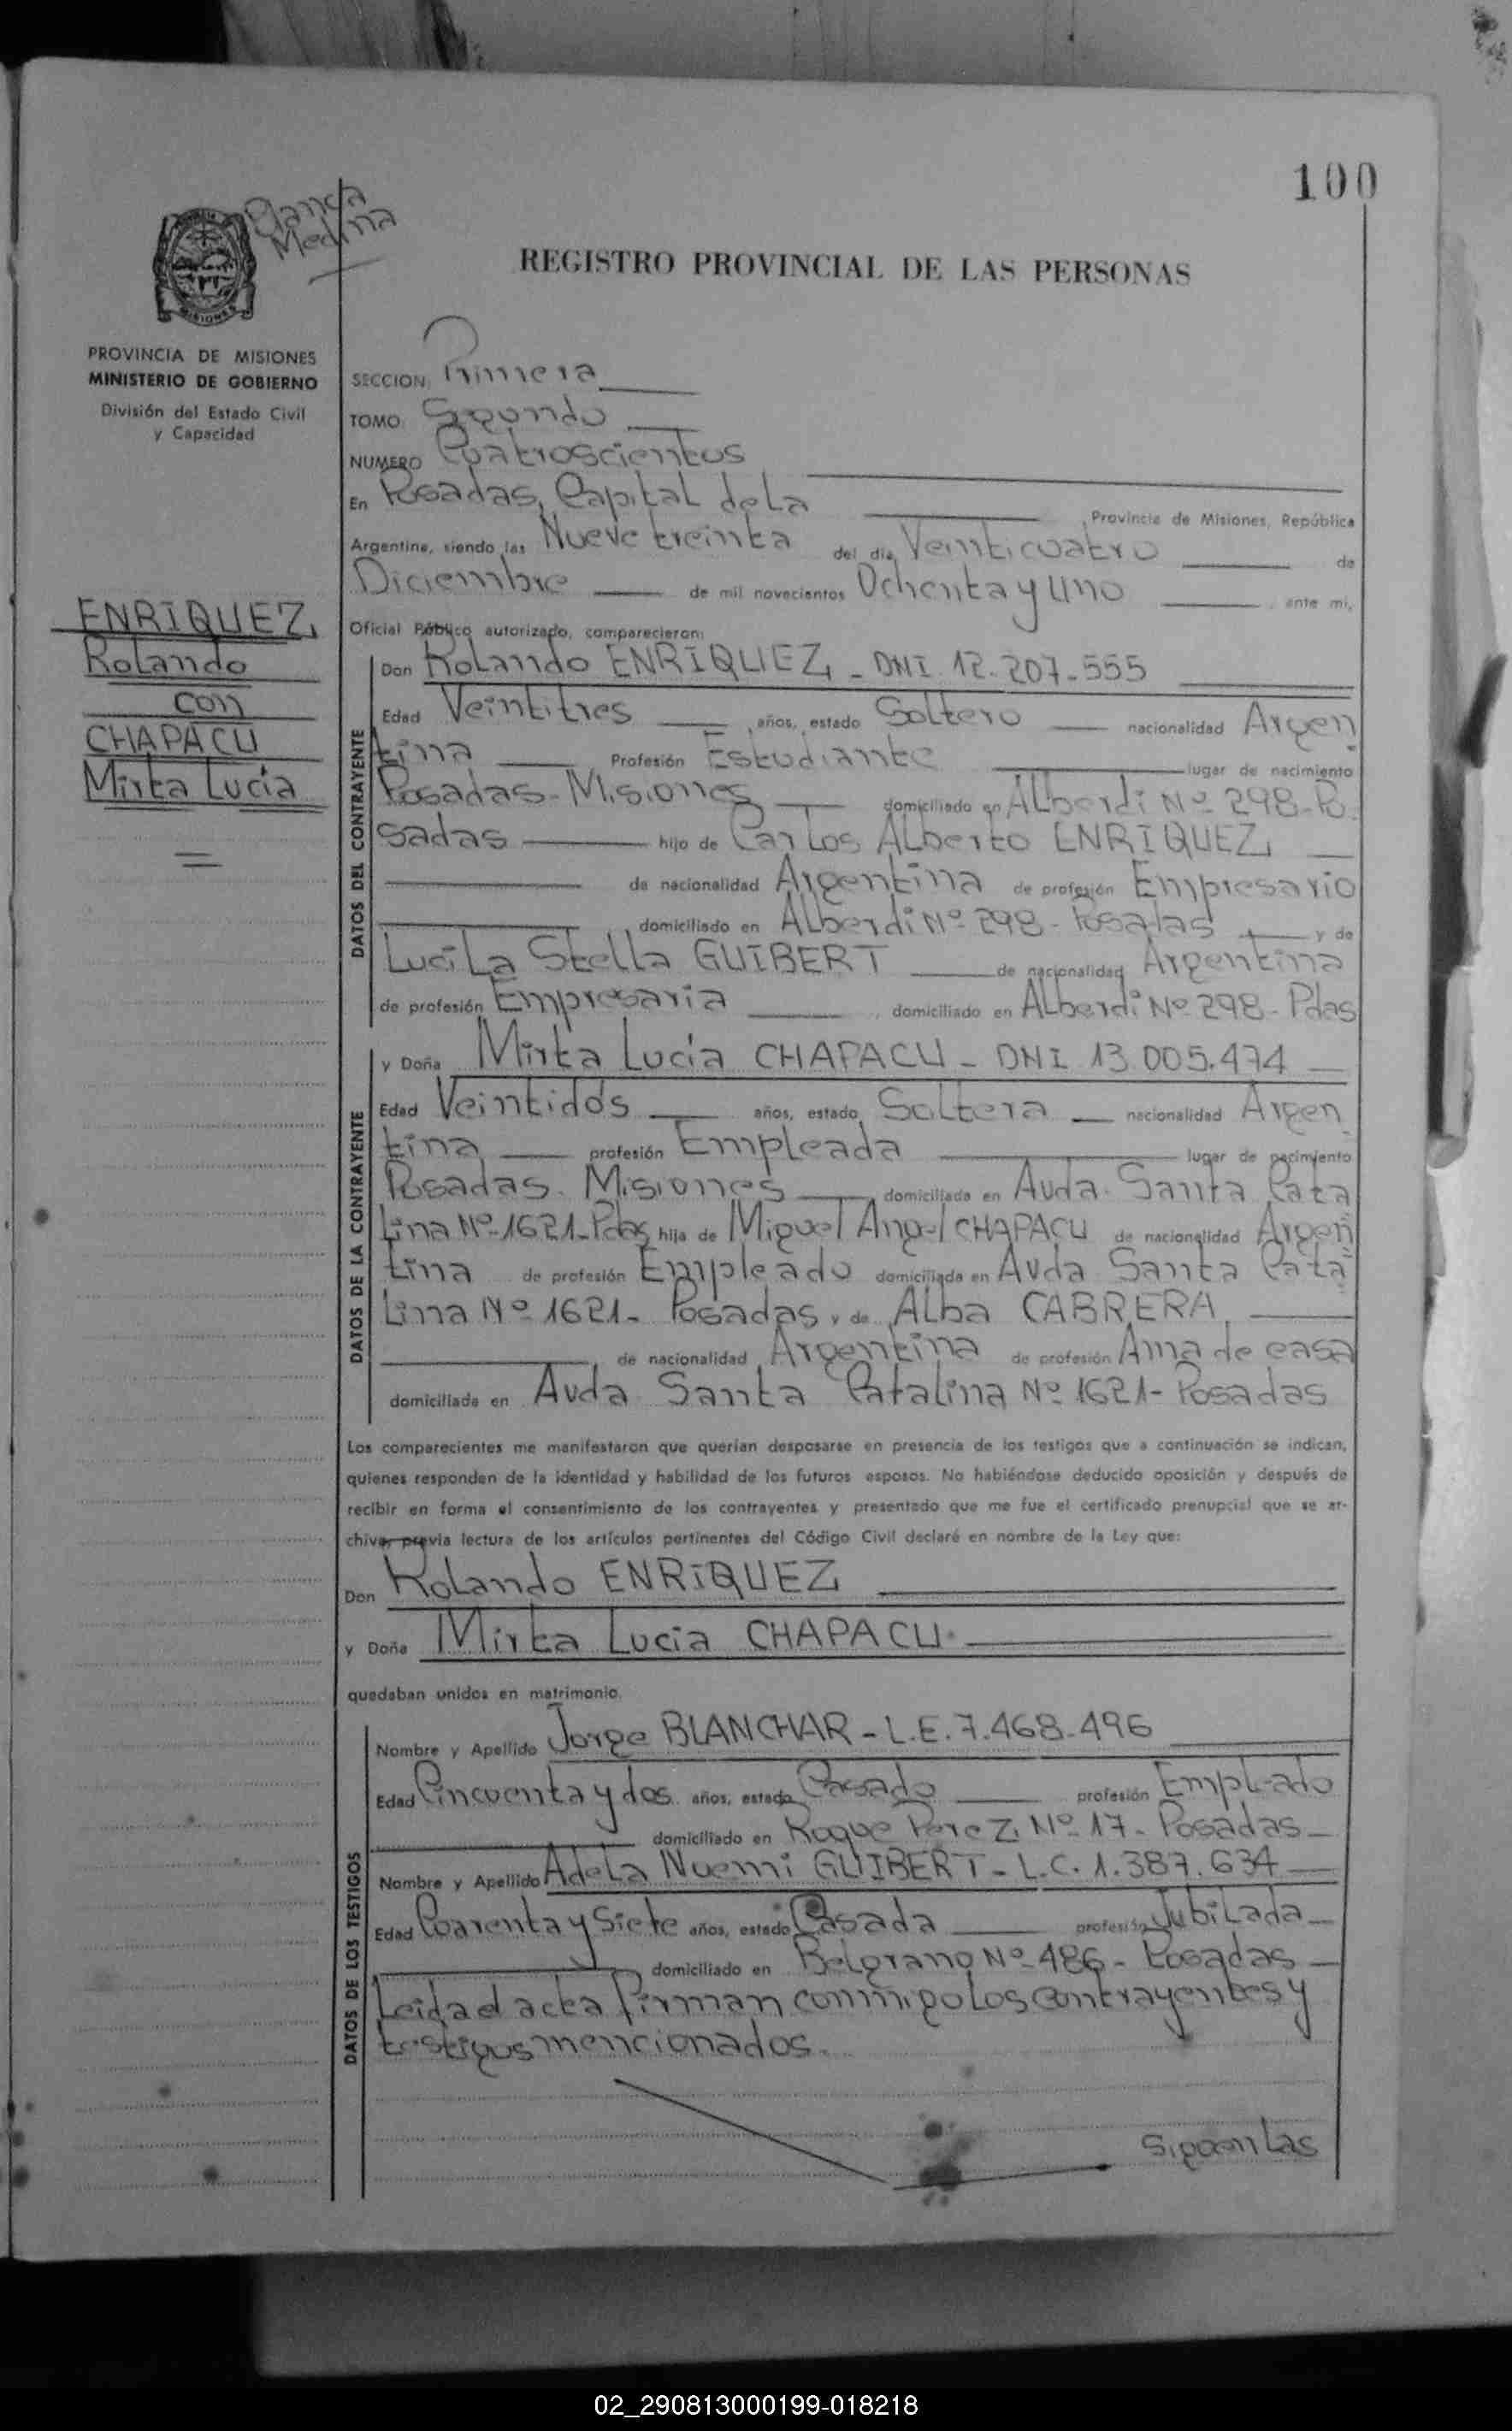 100
Blanca
Medina
REGISTRO PROVINCIAL DE LAS PERSONAS
MISIONES
PROVINCIA DE MISIONES
MINISTERIO DE GOBIERNO
División del Estado Civil
y Capacidad
SECCION Primera
TOMO Segundo
NUMERO Cuatroscientos
En Posadas, Capital de La Provincia de Misiones, República
Argentina, siendo las Nueve treinta del día Veinticuatro de
Diciembre de mil novecientos Ochenta y uno ante mi,
Oficial Público autorizado, comparecieron:
ENRIQUEZ,
Rolando
con
CHAPACU
Mirta Lucía
DATOS DEL CONTRAYENTE
Don Rolando ENRIQUEZ - DNI 12.207.555
Edad Veintitres años, estado Soltero nacionalidad Argen
tina Profesión Estudiante lugar de nacimiento
Posadas - Misiones domiciliado en Alberdi Nº 298 - Po
sadas hijo de Carlos Alberto ENRIQUEZ
de nacionalidad Argentina de profesión Empresario
domiciliado en Alberdi Nº 298 - Posadas y de
Lucila Stella GUIBERT de nacionalidad Argentina
de profesión Empresaria domiciliado en Alberdi Nº 298 - Pdas
DATOS DE LA CONTRAYENTE
y Doña Mirta Lucía CHAPACU - DNI 13.005.474
Edad Veintidós años, estado Soltera nacionalidad Argen
tina profesión Empleada lugar de nacimiento
Posadas. Misiones domiciliada en Avda. Santa Cata
lina Nº 1621 - Pdas hija de Miguel Angel CHAPACU de nacionalidad Argen
tina de profesión Empleado domiciliado en Avda Santa Cata
lina Nº 1621 - Posadas y de Alba CABRERA
de nacionalidad Argentina de profesión Ama de casa
domiciliada en Avda Santa Catalina Nº 1621 - Posadas
Los comparecientes me manifestaron que querían desposarse en presencia de los testigos que a continuación se indican,
quienes responden de la identidad y habilidad de los futuros esposos. No habiéndose deducido oposición y después de
recibir en forma el consentimiento de los contrayentes y presentado que me fue el certificado prenupcial que se ar-
chiva, previa lectura de los artículos pertinentes del Código Civil declaré en nombre de la Ley que:
Don Rolando ENRIQUEZ
y Doña Mirta Lucia CHAPACU
quedaban unidos en matrimonio.
DATOS DE LOS TESTIGOS
Nombre y Apellido Jorge BLANCHAR - L.E. 7.468.496
Edad Cincuenta y dos años, estado Casado profesión Empleado
domiciliado en Roque Perez Nº 17 - Posadas
Nombre y Apellido Adela Nuemi GUIBERT - L.C. 1.387.634
Edad Cuarenta y Siete años, estado Casada profesión Jubilada
domiciliado en Belgrano Nº 486 - Posadas
Leida el acta firman conmigo los contrayentes y
testigos mencionados.
Siguen las
02_290813000199-018218